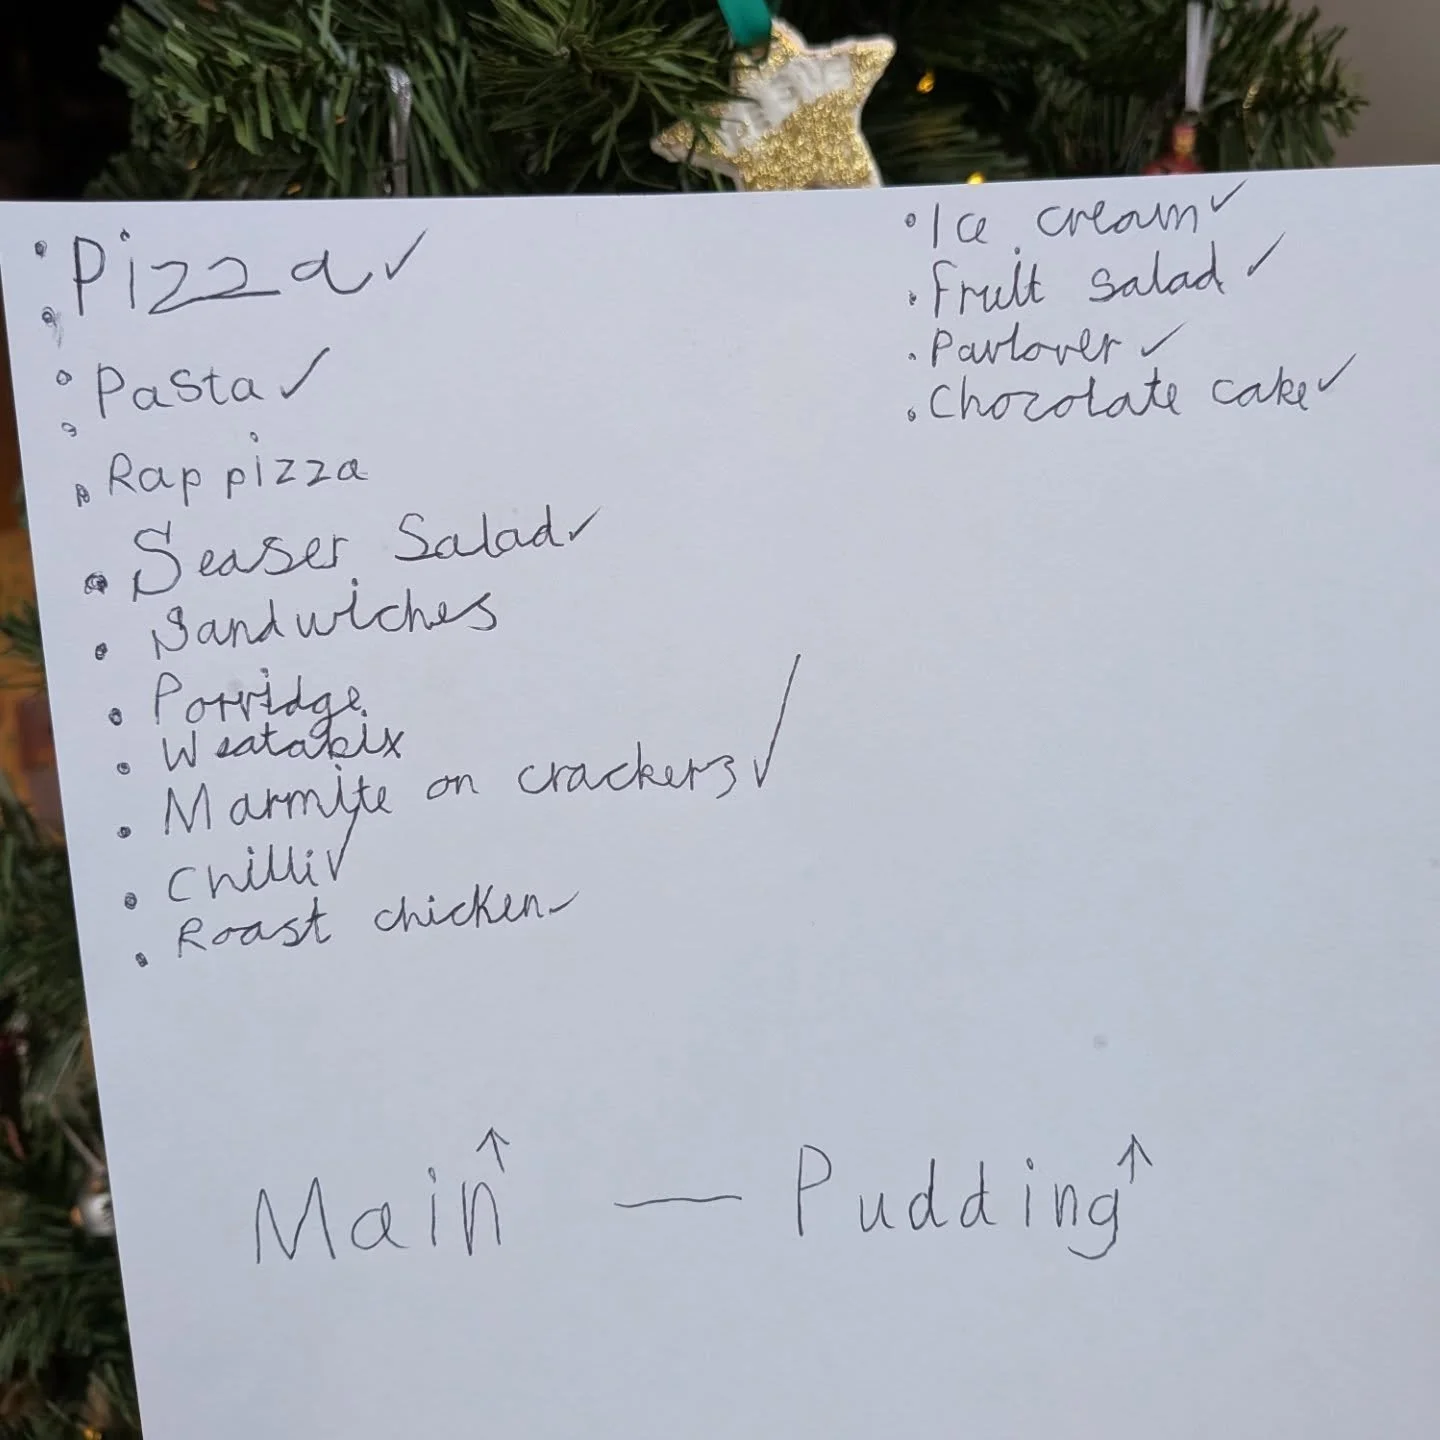 • Pizza ✓
• Pasta ✓
• Rap pizza
• Seaser Salad ✓
• Sandwiches
• Porridge
• Weatabix
• Marmite on crackers ✓
• Chilli ✓
• Roast chicken ✓
• Ice cream ✓
• Fruit salad ✓
• Pavlover ✓
• Chocolate cake ✓
Main ↑ — Pudding ↑